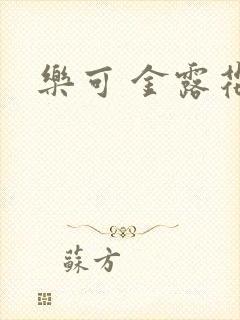 樂可 金露花
蘇方